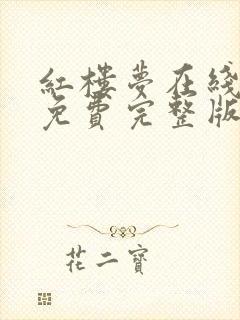 紅樓夢在綫
免費完整版
花二寶